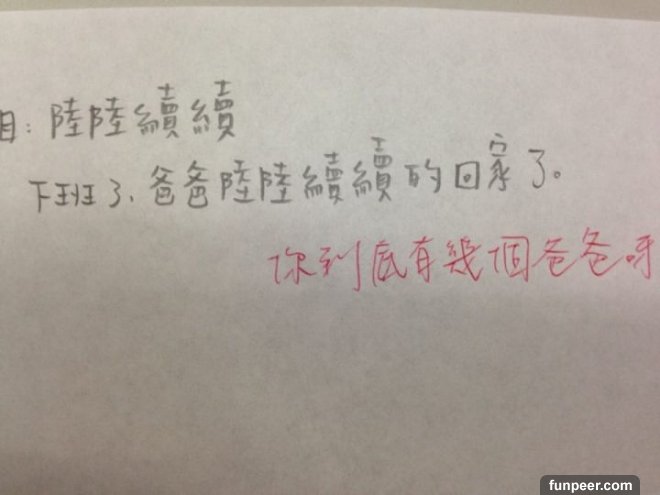 目：陸陸續續
下班了，爸爸陸陸續續的回家了。
你到底有幾個爸爸呀
funpeer.com